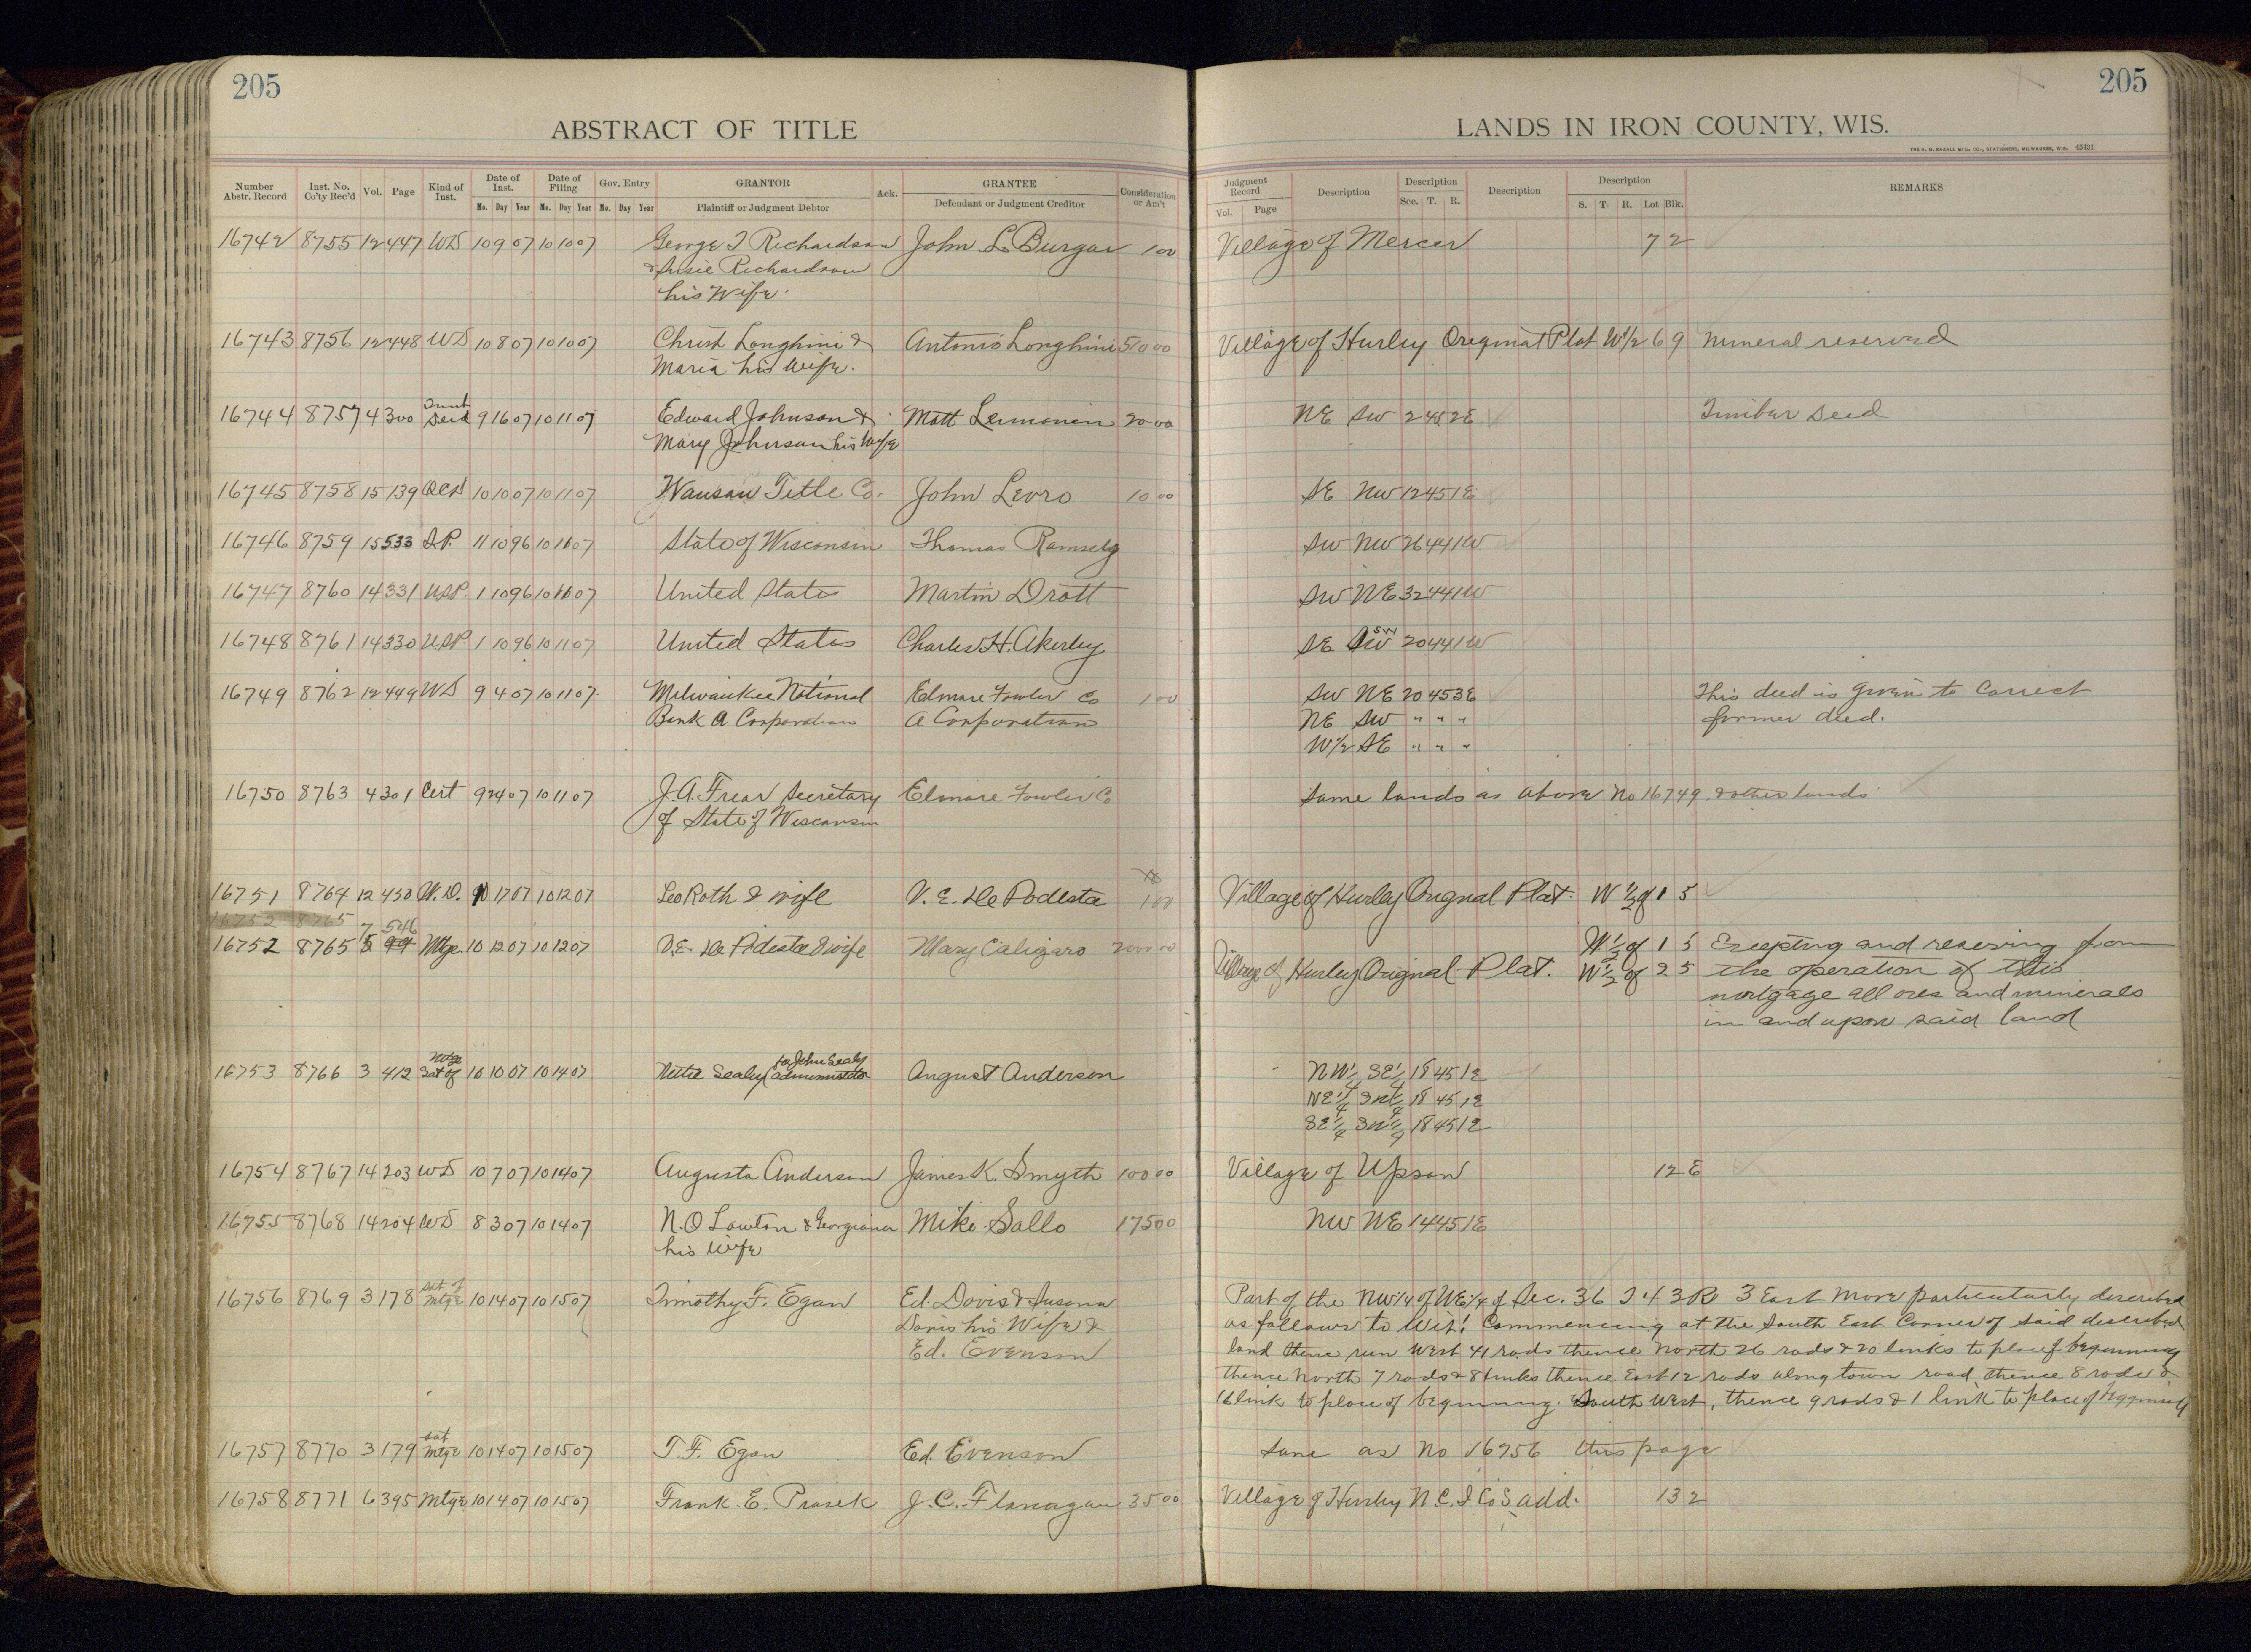 205
ABSTRACT OF TITLE
Number Abstr. Record | Inst. No. Co'ty Rec'd | Vol. | Page | Kind of Inst. | Date of Inst. Mo. Day Year | Date of Filing Mo. Day Year | Gov. Entry Mo. Day Year | GRANTOR Plaintiff or Judgment Debtor | Ack. | GRANTEE Defendant or Judgment Creditor | Consideration or Am't
16742 8755 12 447 WD 10 9 07 10 10 07 George I Richardson John L. Burgar 1 00
& Susie Richardson
his Wife.
16743 8756 12 448 WD 10 8 07 10 10 07 Christ Longhini & Antonio Longhini
Maria his Wife.
16744 8757 4 300 Deed 9 16 07 10 11 07 Edward Johnson & Matt Lemonen 20 00
Mary Johnson his Wife
16745 8758 15 139 QCD 10 10 07 10 11 07 Wausau Title Co. John Levro 10 00
16746 8759 15 533 S.P. 11 10 96 10 11 07 State of Wisconsin Thomas Ramsely
16747 8760 14 331 USP. 1 10 96 10 11 07 United States Martin Drott
16748 8761 14 330 USP. 1 10 96 10 11 07 United States Charles H. Akerley
16749 8762 12 449 WD 9 4 07 10 11 07. Milwaukee National Elmore Fowler Co 1 00
Bank A Corporation A Corporation
16750 8763 4 301 Cert 9 24 07 10 11 07 J. A. Frear Secretary Elmore Fowler Co
of State of Wisconsin
16751 8764 12 450 W.D. 10 17 07 10 12 07 Leo Roth & wife V. E. De Podesta 1 00
16752 8765
7 546
16752 8765 5 99 Mtge. 10 12 07 10 12 07 V.E. De Podesta & wife Mary Caligaro 2000 00
16753 8766 3 412 Sat of Mtge 10 10 07 10 14 07 Nettie Sealey for John Sealy administrator August Anderson
16754 8767 14 203 WD 10 7 07 10 14 07 Augusta Anderson James K. Smyth 100 00
16755 8768 14 204 WD 8 3 07 10 14 07 N. O Lawton & Georgiana Mike Sallo 175 00
his Wife
16756 8769 3 178 Sat of Mtge 10 14 07 10 15 07 Timothy F. Egan Ed. Davis & Susana
Davis his Wife &
Ed. Evenson
16757 8770 3 179 Sat Mtge 10 14 07 10 15 07 T. F. Egan Ed. Evenson
16758 8771 6 395 Mtge 10 14 07 10 15 07 Frank. E. Prasek J. C. Flanagan 35 00
205
LANDS IN IRON COUNTY, WIS.
THE H. G. RAZALL MFG. CO., STATIONERS, MILWAUKEE, WIS. 45431
Judgment Record Vol. Page | Description | Description Sec. T. R. | Description | Description S. T. R. Lot Blk. | REMARKS
Village of Mercer 7 2
Village of Hurley Original Plat W½ 6 9 Mineral reserved
NE SW 2 45 2E Timber Deed
SE NW 12 45 1E
SW NW 26 44 1W
SW NE 32 44 1W
SE SW 20 44 1W
SW NE 20 45 3E This deed is given to Correct
NE SW " " " former deed.
W½ SE " " "
Same lands as above No 16749 & other lands
Village of Hurley Orignal Plat. W ½ of 1 5
W ½ of 1 5 Excepting and reserving from
Village of Hurley Orignal Plat. W ½ of 2 5 the operation of this
mortgage all ores and minerals
in and upon said land
NW¼ SE¼ 18 45 1E
NE¼ SW¼ 18 45 1E
SE¼ SW¼ 18 45 1E
Village of Upson 12 E
NW NE 14 45 1E
Part of the NW¼ of NE¼ of Sec. 36 T 43 R 3 East More particularly described
as follows to Wit: Commencing at the South East Corner of said described
land thence run West 41 rods thence North 26 rods & 20 links to place of beginning
thence North 7 rods & 8 links thence East 12 rods along town road, thence 8 rods &
16 link to place of beginning. South West, thence 9 rods & 1 link to place of beginning
Same as No 16756 this page
Village of Hurley N. C. I Co's add. 13 2